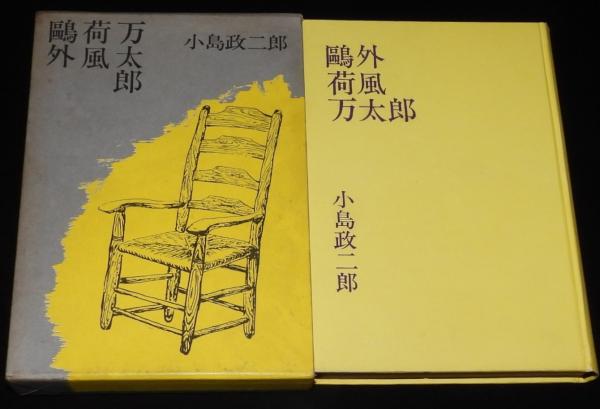 鷗外
荷風
万太郎
小島政二郎
鷗外
荷風
万太郎
小島政二郎